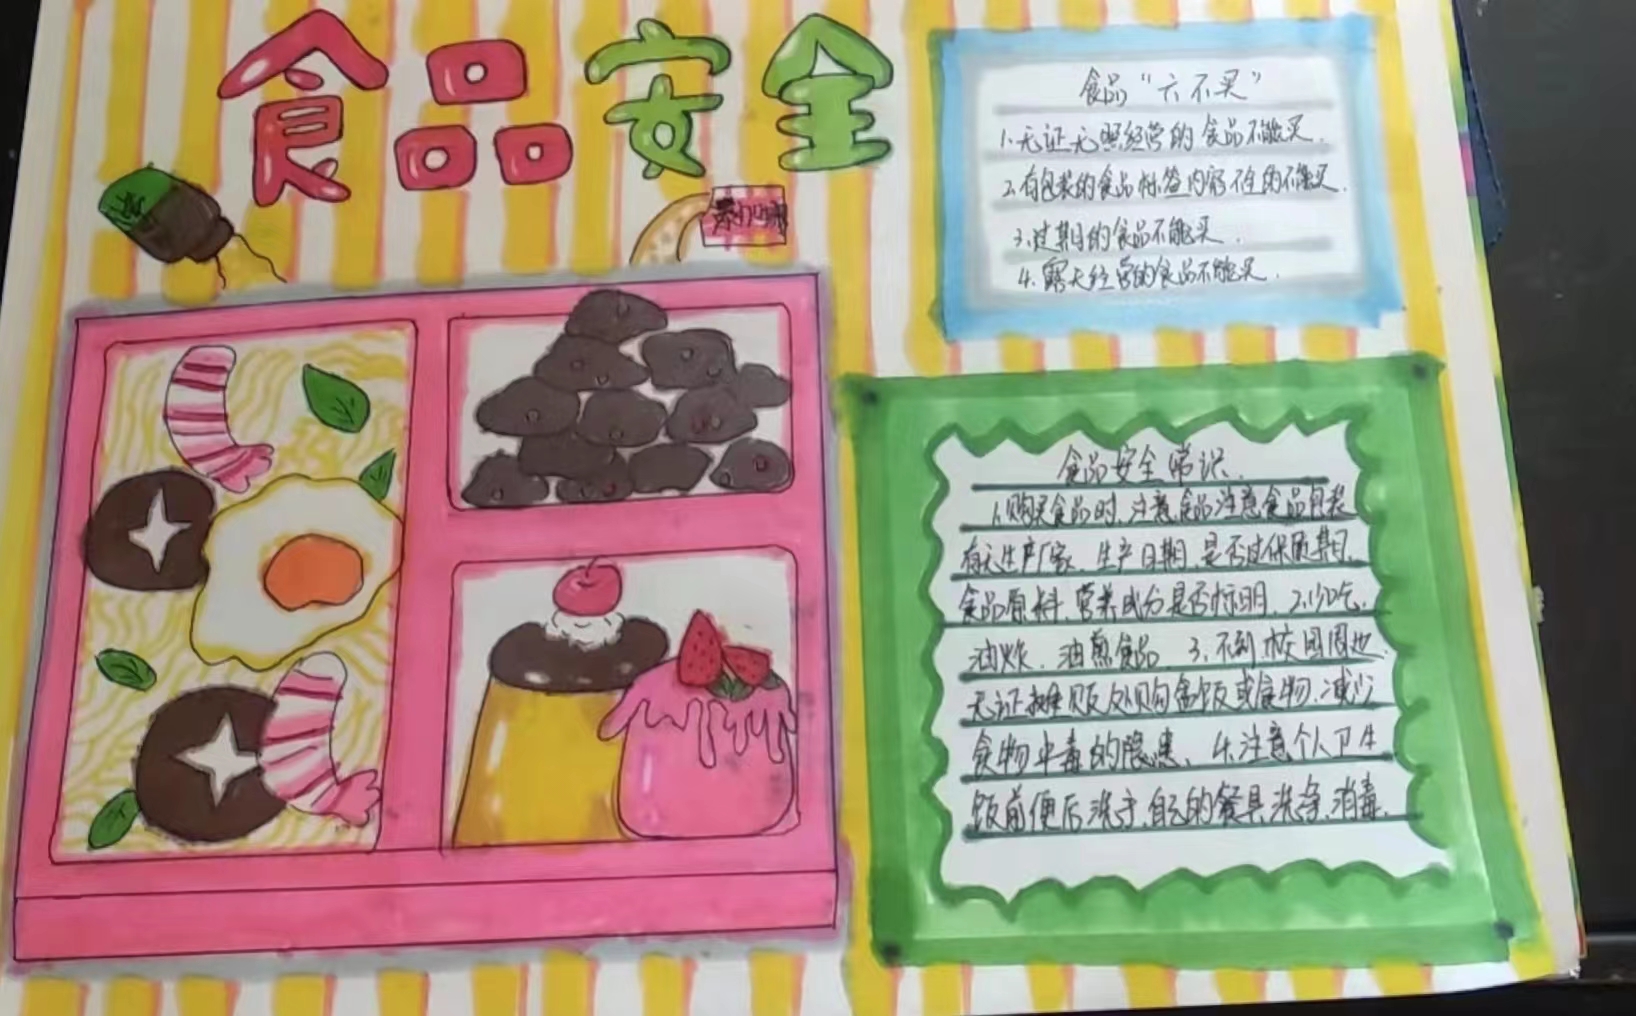 食品安全
食品“六不买”
1.无证无照经营的食品不能买.
2.有包装的食品标签内容不全的不能买.
3.过期的食品不能买.
4.露天经营的食品不能买.
食品安全常识.
1.购买食品时,注意食品注意食品包装
有无生产厂家、生产日期,是否过保质期,
食品原料,营养成分是否标明.2.少吃.
油炸、油煎食品.3.不到校园周边
无证摊贩处购盒饭或食物,减少
食物中毒的隐患、4.注意个人卫生
饭前便后洗手,自己的餐具洗净,消毒.